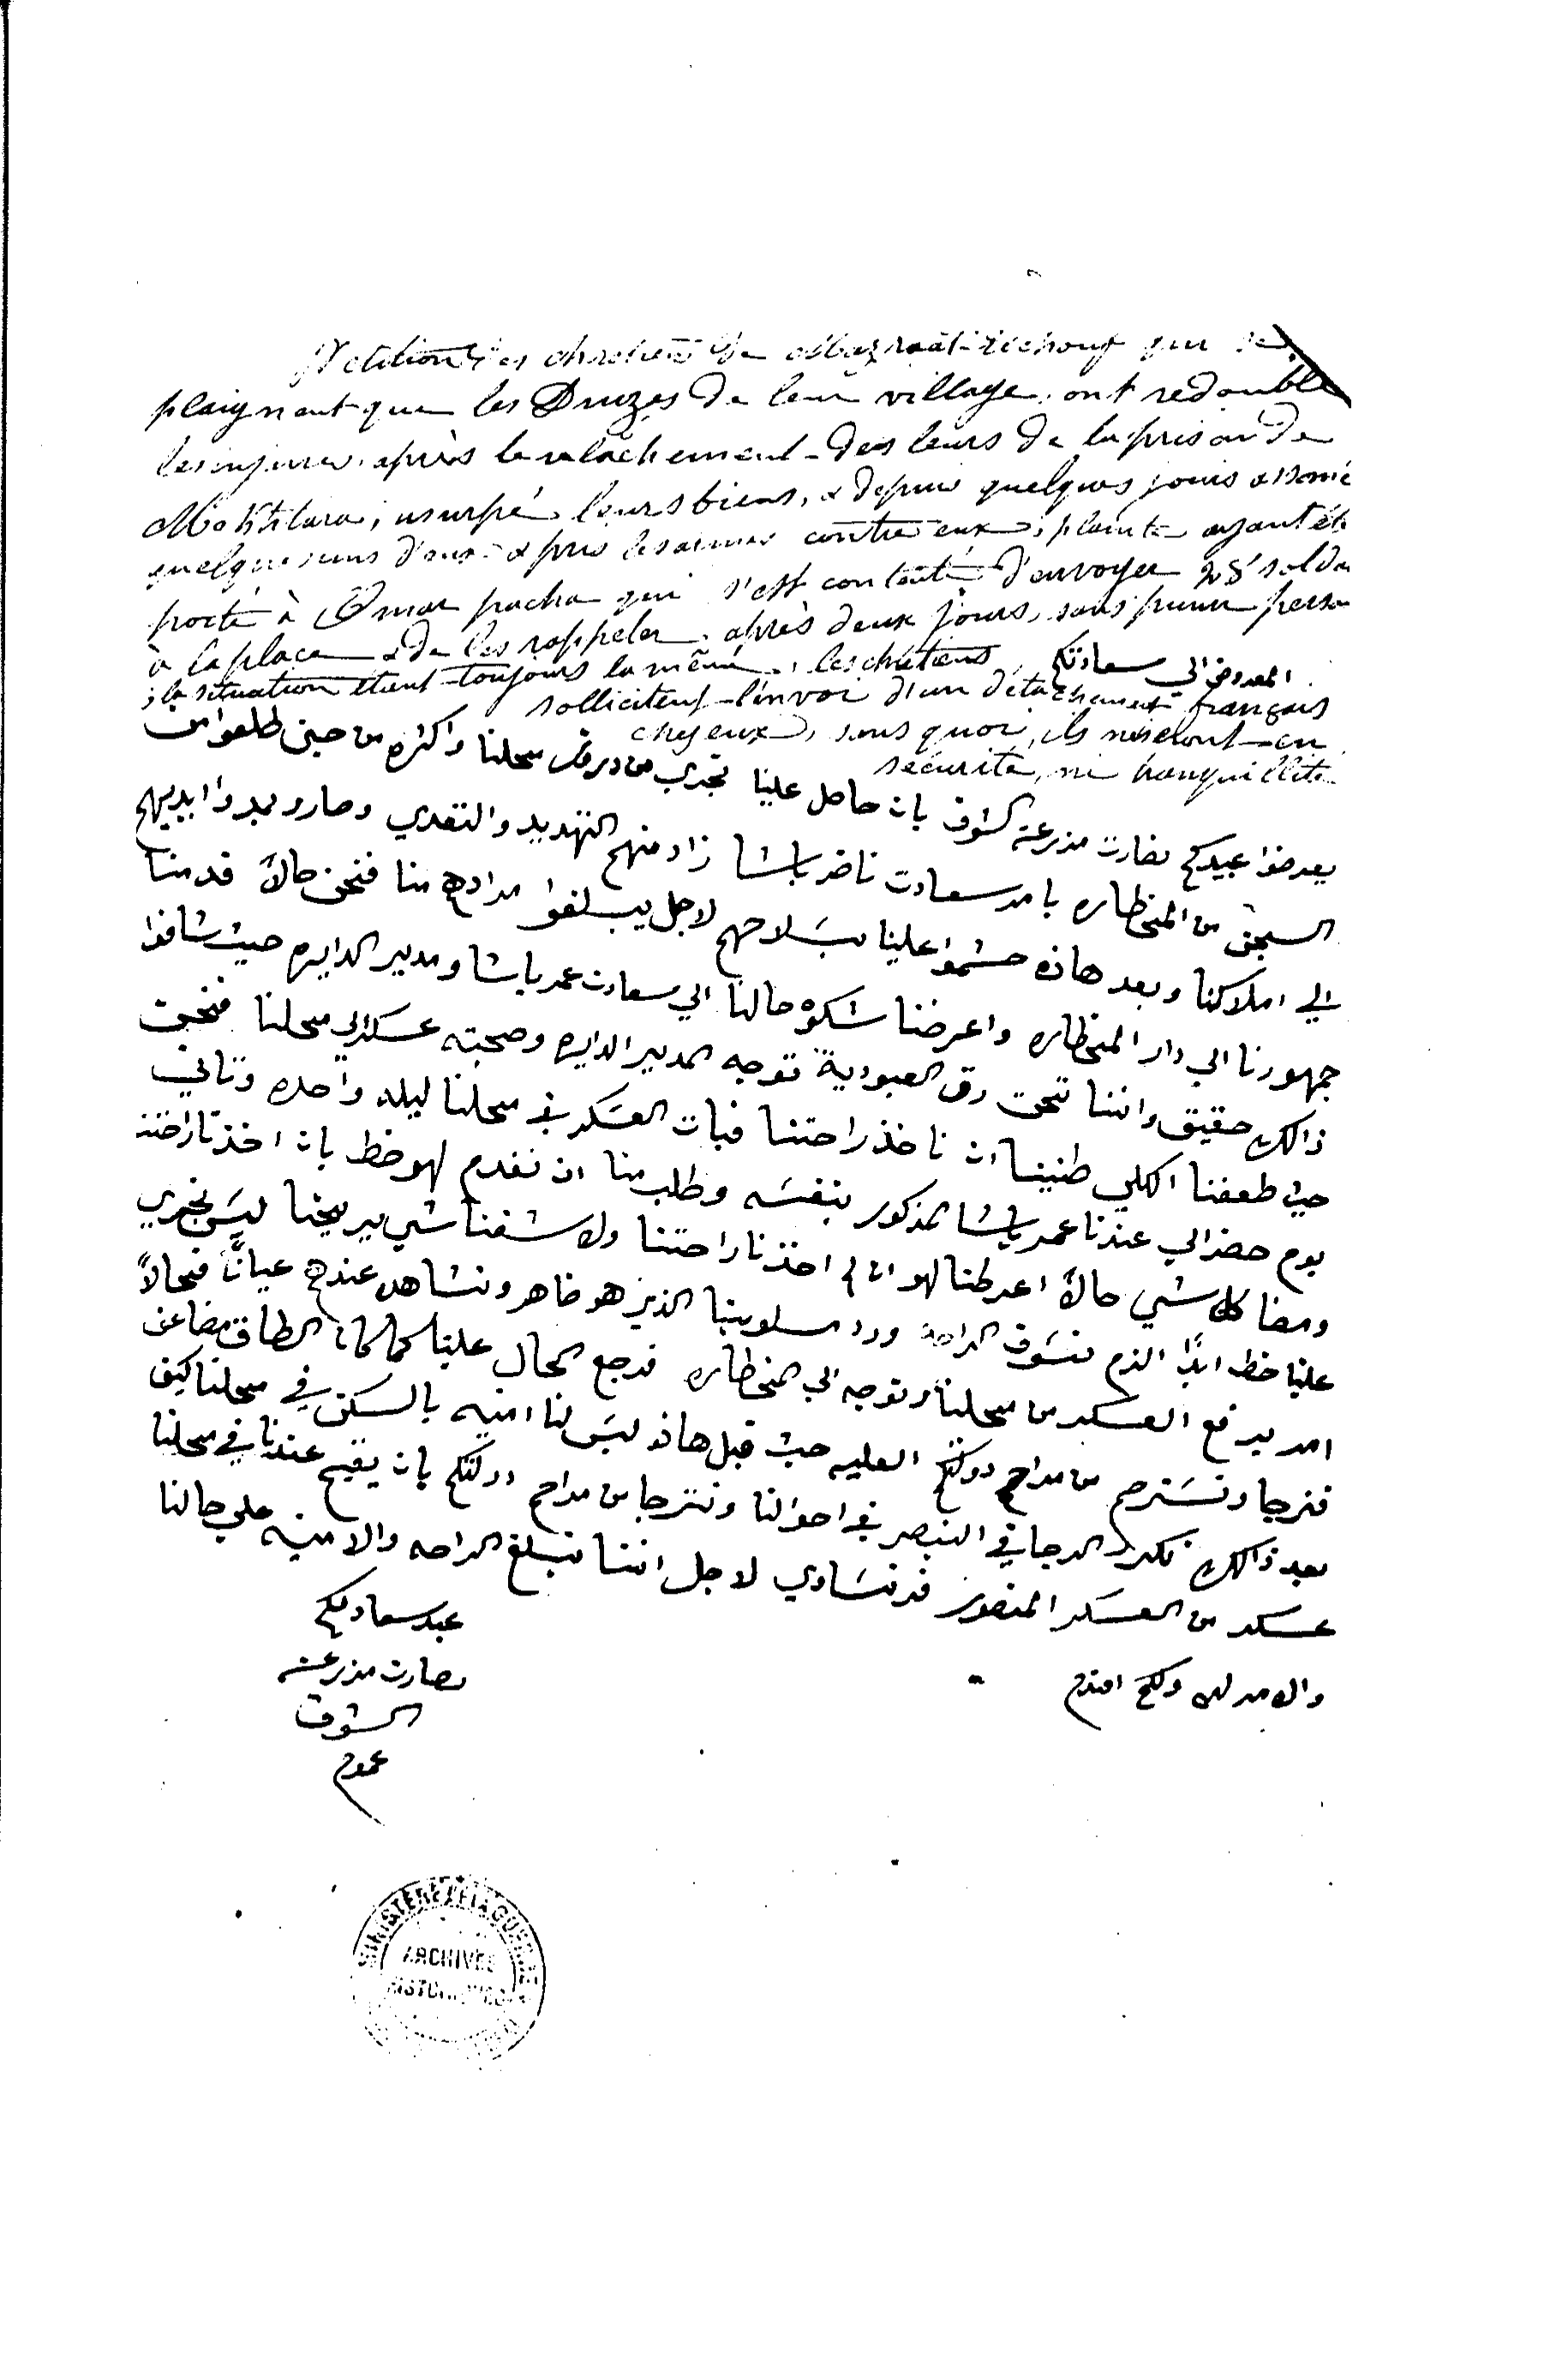 Pétition des chrétiens de Mazraât-èchouf qui se
plaignent que les Druzes de leur village, ont redoublé
les injures, après le relâchement des leurs de la prison de
Mokhtara, usurpé leurs biens, & depuis quelques jours assomé
quelques uns d'eux & pris les armes contre eux, plainte ayant été
porté à Omar pacha qui s'est contenté d'envoyer solda
à la place & de les rappeler, après deux jours, sans punir perso
; la situation étant toujours la même, les chrétiens
sollicitent l'envoi d'un détachement français
chez eux, sans quoi, ils ne seront en
sécurité, ni tranquillité
المعروض الي سعادتكم
يعرضوا عبيدكم نصارت مزرعة الشوف بان حاصل علينا تجدي من دروز محلنا واكثره من حين طلعوا من
السجن من المخطاره بامر سعادت ناضر باشا زاد منهم التهديد والتعدي وصارو يمدوا ايديهم
الي املاكنا وبعد هاذه علينا بسلاحهم لاجل يبلغوا مرادهم منا فنحن حالاً قدمنا
جمهورنا الي دار المخطاره واعرضنا شكوه حالنا الي سعادت عمر باشا ومدير الدايره حيث شافوا
ذالك حقيق واننا تحت رق العبودية توجه المدير الدايره وصحبته عسكر الي محلنا فنحن
حيث الكلي طنينا ان ناخذ راحتنا فبات العسكر في محلنا ليله واحده وتاني
يوم حضر الي عندنا عمر باشا المذكور بنفسه وطلب منا ان نقدم لهو خط بان اخذنا راحتنا
ومضا كل شي حالاً اعرطنا لهو اننا لم اخذنا راحتنا ولا شفنا شي يريحنا ليس يجري
علينا خط ابدًا الذم نشوف الراحة ورد مسلوبنا الذين هو ضاهر ونشاهده عندهم عيانًا فحالاً
امر يرفع العسكر من محلنا وتوجه الي المخطاره فرجع الحال علينا كما كان الطاق مضاعف
فنرجا ونسترحم من مراحم دولتكم العليه حيث قبل هاذه ليس لنا امنيه بالسكن في محلنا كيف
بعد ذالك نكرر الرجا في التبصر في احوالنا ونترجا من مراحم دولتكم بان يقيم عندنا في محلنا
عسكر من العسكر المنصور فرنساوي لاجل اننا نبلغ الراحه والامنيه علي حالنا
والامر لمن ولكم افندم
عبد سعادتكم
نصارت مزرعة
الشوف
عموم
MINISTÈRE DE LA GUERRE
ARCHIVES
HISTORIQUES